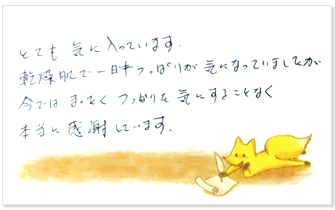 とても 気に入っています.
乾燥肌で一日中つっぱりが 気になっていましたが
今では まったく つっぱりを 気にすることなく
本当に 感謝しています.